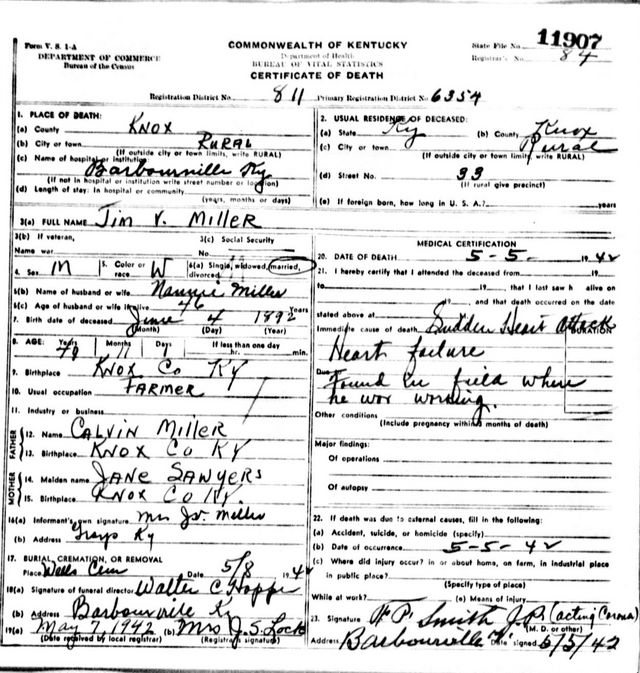 Form V. S. 1-A
DEPARTMENT OF COMMERCE
Bureau of the Census
COMMONWEALTH OF KENTUCKY
Department of Health
BUREAU OF VITAL STATISTICS
CERTIFICATE OF DEATH
State File No. 11907
Registrar's No. 84
Registration District No. 811 Primary Registration District No. 6354
1. PLACE OF DEATH:
(a) County KNOX
(b) City or town RURAL
(If outside city or town limits, write RURAL)
(c) Name of hospital or institution
Barbourville Ky
(If not in hospital or institution write street number or location)
(d) Length of stay: In hospital or community
(years, months or days)
2. USUAL RESIDENCE OF DECEASED:
(a) State Ky (b) County Knox
(c) City or town Rural
(If outside city or town limits, write RURAL)
(d) Street No. 33
(If rural give precinct)
(e) If foreign born, how long in U. S. A.? years
3(a) FULL NAME Jim V. MILLER
3(b) If veteran, 3(c) Social Security
Name war No.
4. Sex M 5. Color or race W 6(a) Single, widowed, married, divorced
6(b) Name of husband or wife Nannie Miller
6(c) Age of husband or wife if alive 46 Years
7. Birth date of deceased June 4 1892
(Month) (Day) (Year)
8. AGE: Years Months Days If less than one day
11 1 hr. min.
9. Birthplace KNOX Co KY
10. Usual occupation FARMER
11. Industry or business
FATHER
12. Name CALVIN MILLER
13. Birthplace KNOX Co KY
MOTHER
14. Maiden name JANE SAWYERS
15. Birthplace KNOX Co KY.
16(a) Informant's own signature Mrs JV. Miller
(b) Address Grays Ky
17. BURIAL, CREMATION, OR REMOVAL
Place Wells Cem Date 5/8 1942
18(a) Signature of funeral director Walter C Hopper
(b) Address Barbourville Ky
19(a) May 7 1942 (b) Mrs J.S. Lock
(Date received by local registrar) (Registrar's signature)
MEDICAL CERTIFICATION
20. DATE OF DEATH 5-5- 1942
21. I hereby certify that I attended the deceased from 19
to 19 , that I last saw h alive on
19 , and that death occurred on the date
stated above at M. DURATION
Immediate cause of death Sudden Heart Attack
Heart failure
Due to Found in field where
he wor working.
Other conditions
(Include pregnancy within 3 months of death)
Major findings:
Of operations
Of autopsy
22. If death was due to external causes, fill in the following:
(a) Accident, suicide, or homicide (specify)
(b) Date of occurrence 5-5-42
(c) Where did injury occur? in or about home, on farm, in industrial place
in public place?
(Specify type of place)
While at work? (e) Means of injury
23. Signature F P. Smith J.P. (acting Corona)
(M. D. or other)
Address Barbourville Ky Date signed 5/5/42